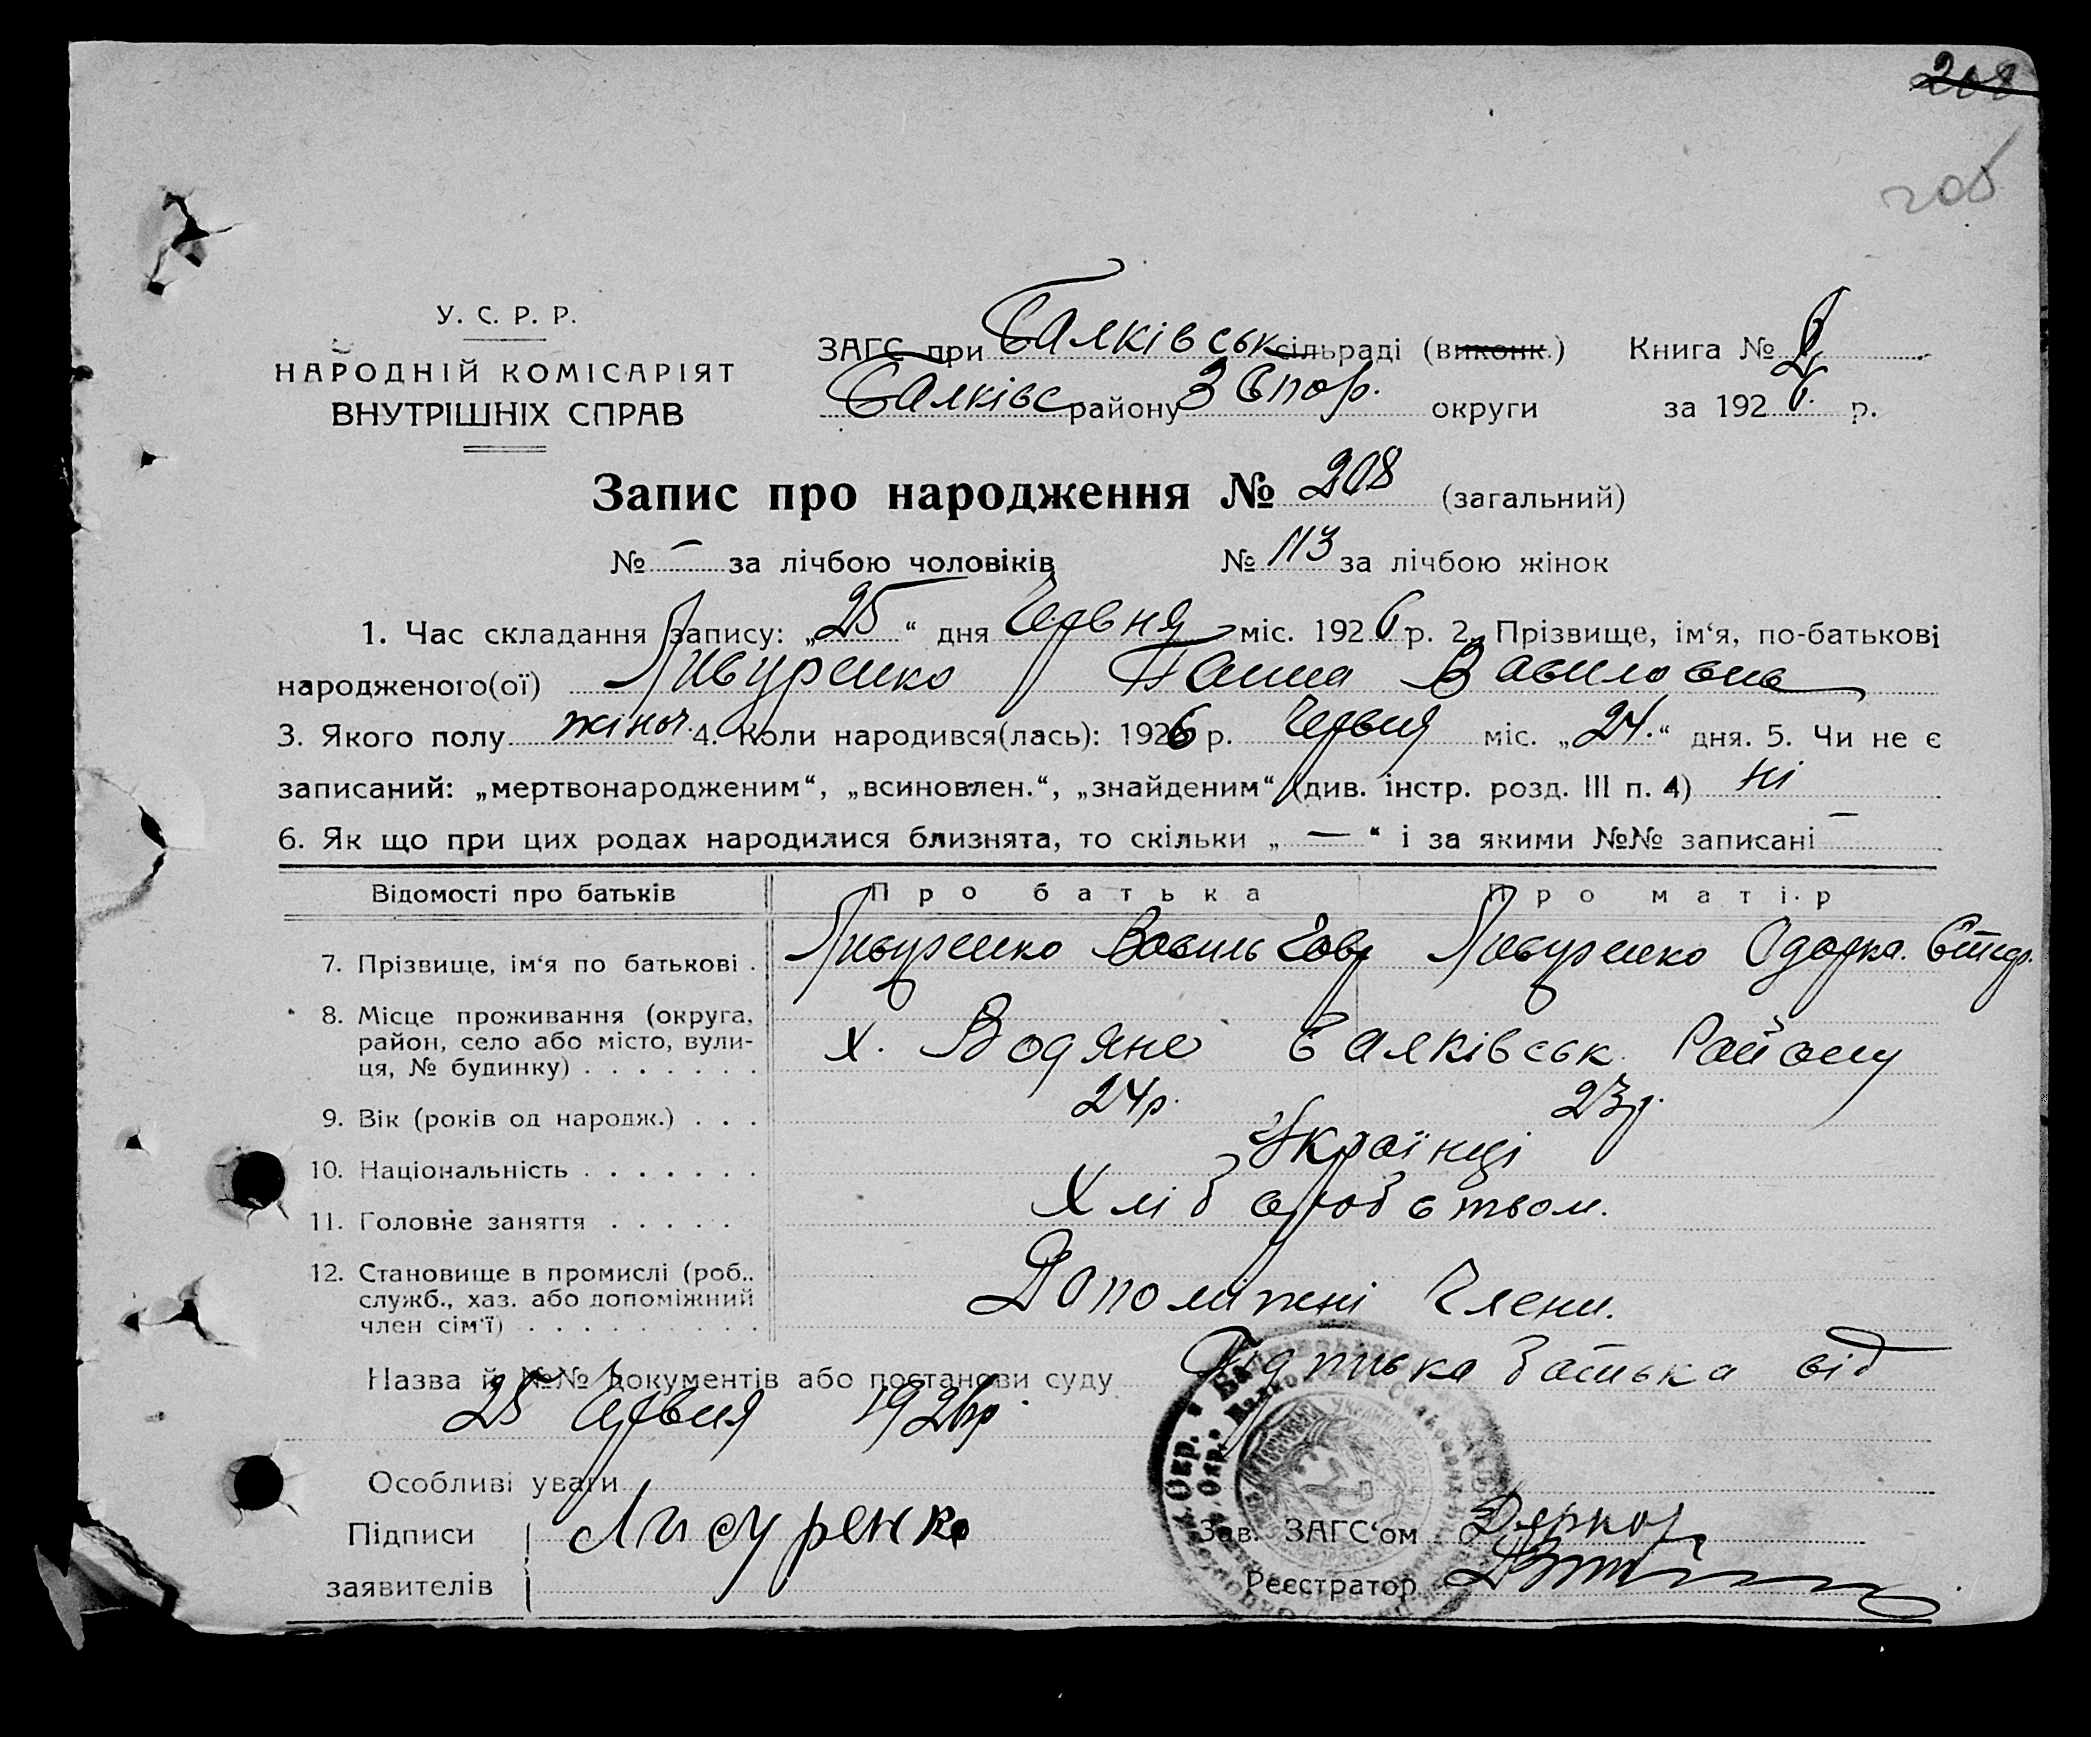 208
208
У. С. Р. Р.
НАРОДНІЙ КОМІСАРІЯТ
ВНУТРІШНІХ СПРАВ
ЗАГС при Балківськ сільраді (виконк.) Книга №
Балківс району Запор. округи за 1926 р.
Запис про народження № 208 (загальний)
№ — за лічбою чоловіків № 113 за лічбою жінок
1. Час складання запису: „25“ дня Червня міс. 1926 р. 2. Прізвище, ім‘я, по-батькові
народженого(ої) Лисуренко Ганна Василовна
3. Якого полу жіноч. 4. Коли народився(лась): 1926 р. Червня міс. „24.“ дня. 5. Чи не є
записаний: „мертвонародженим“, „всиновлен.“, „знайденим“ (див. інстр. розд. III п. 4) ні
6. Як що при цих родах народилися близнята, то скільки „ — “ і за якими №№ записані —
Відомості про батьків Про батька Про матір
7. Прізвище, ім‘я по батькові . Лисуренко Василь Лисуренко Одарка.
8. Місце проживання (округа,
район, село або місто, вули-
ця, № будинку) . . . . . . . х. Водяне Балківськ. Району
9. Вік (років од народж.) . . . 24р. 23р.
10. Національність . . . . . . . Українці
11. Головне заняття . . . . . Хліборобством.
12. Становище в промислі (роб.,
служб., хаз. або допоміжний
член сім‘ї) . . . . . . . . . Допоміжні Члени.
Назва й №№ документів або постанови суду Підписька батька від
25 Червня 1926р.
Особливі уваги
Підписи Лисуренко Зав. ЗАГС‘ом
заявителів Реєстратор